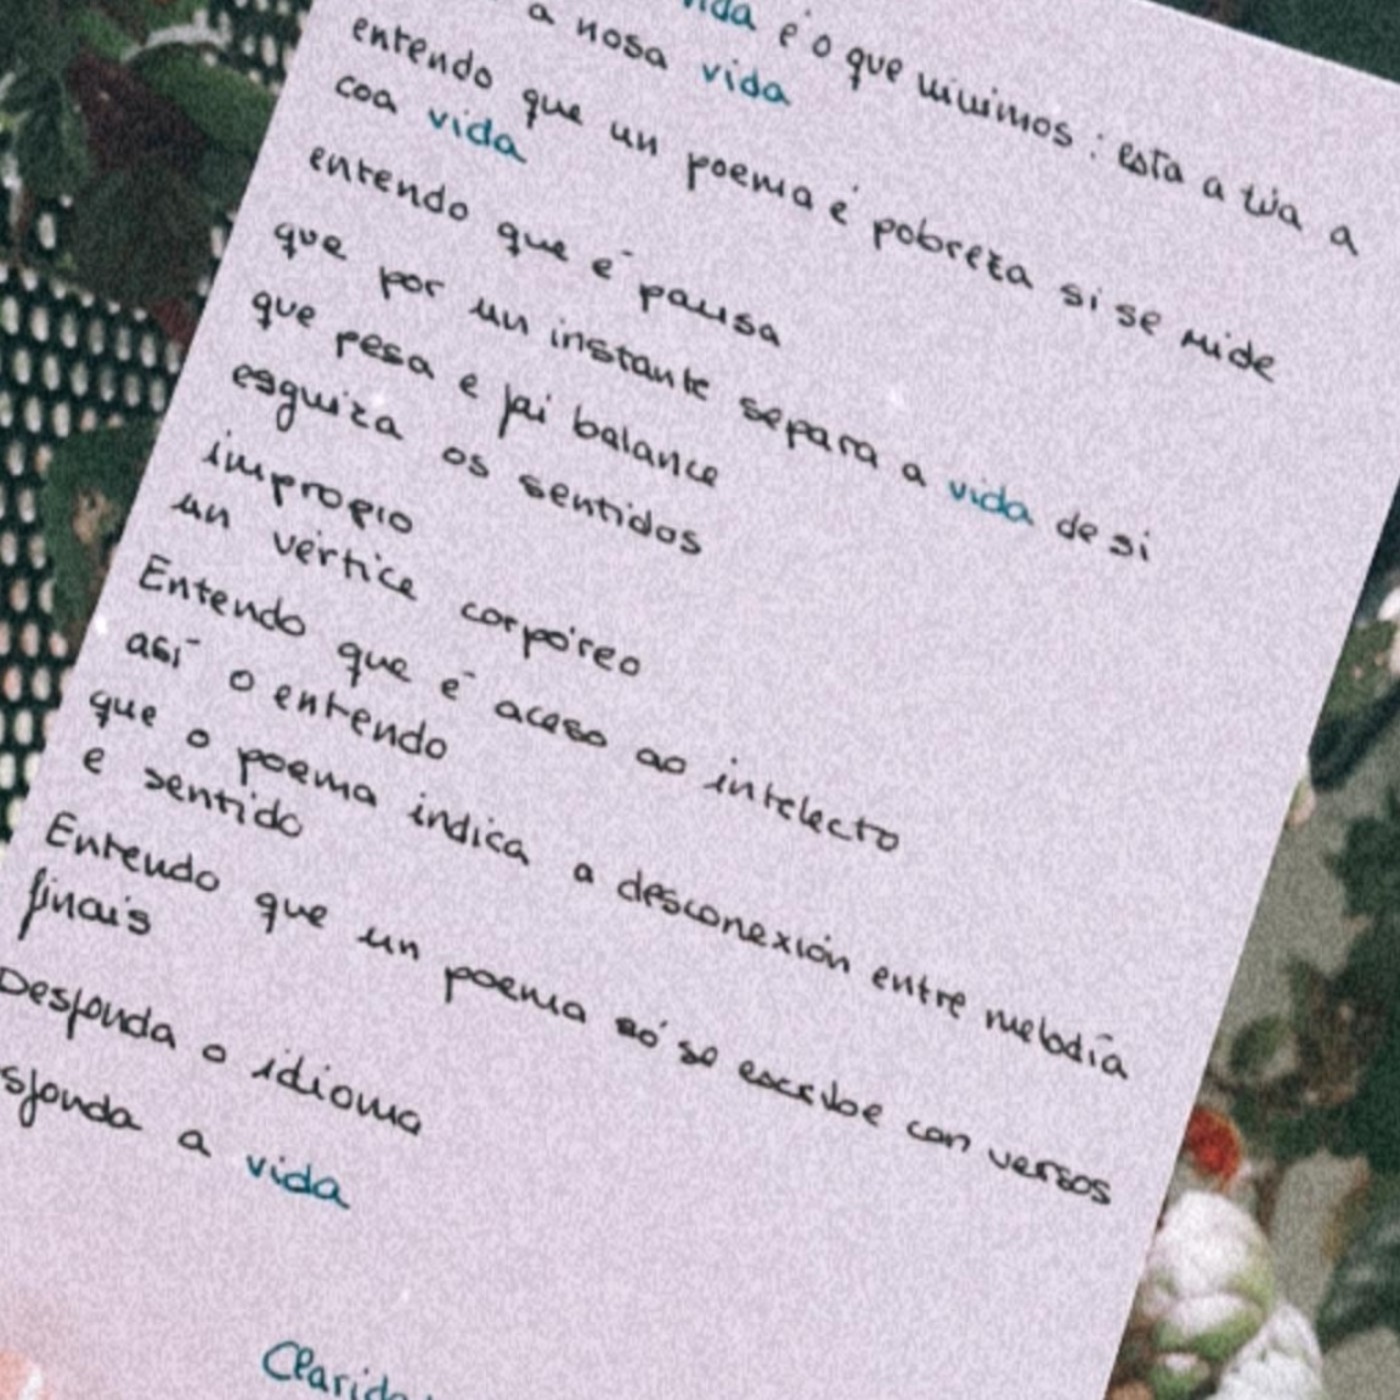 vida é o que vivimos: esta a túa a
a nosa vida
entendo que un poema é pobreza si se mide
coa vida
entendo que é pausa
que por un instante separa a vida de si
que pesa e fai balance
esguiza os sentidos
impropio
un vértice corpóreo
Entendo que é aceso ao intelecto
así o entendo
que o poema indica a desconexión entre melodía
e sentido
Entendo que un poema só se escribe con versos
finais
Desfonda o idioma
sfonda a vida